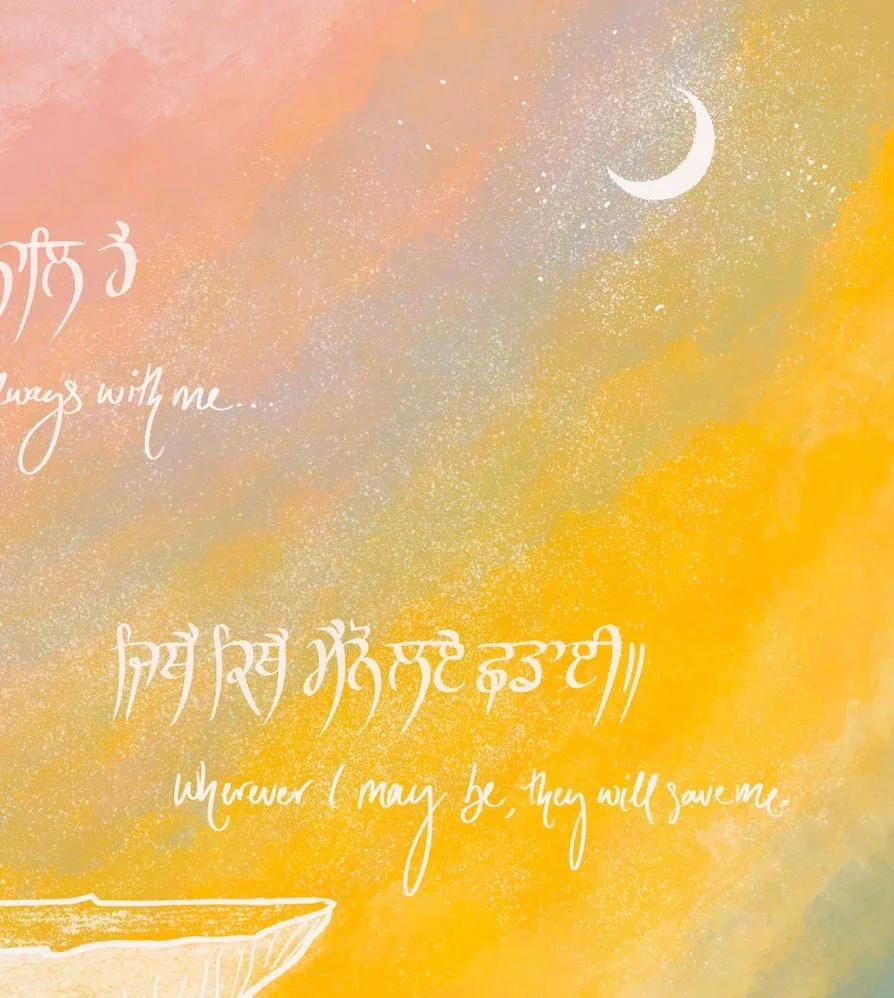 ਨਾਲਿ ਹੈ
lways with me...
ਜਿਥੈ ਕਿਥੈ ਮੈਨੋ ਲਏ ਛਡਾਈ॥
Wherever I may be, they will save me.